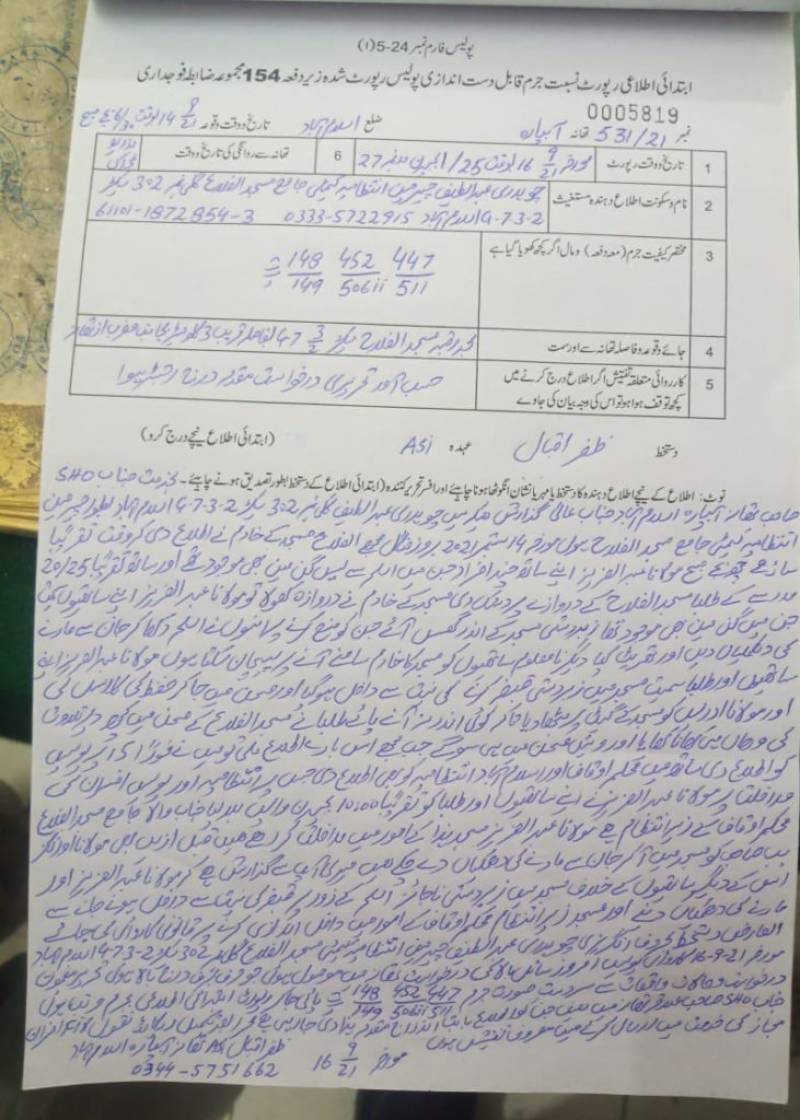 پولیس فارم نمبر 24-5(۱)
ابتدائی اطلاعی رپورٹ نسبت جرم قابل دست اندازی پولیس رپورٹ شدہ زیر دفعہ 154 مجموعہ ضابطہ فوجداری
0005819
نمبر 531/21 تھانہ آبپارہ ضلع اسلام آباد تاریخ و وقت وقوعہ 14 9/21 بوقت 6/30 بجے صبح
1 تاریخ و وقت رپورٹ مورخہ 16 9/21 بوقت 1/25 بجے دن نمبر 27 6 تھانہ سے روانگی کی تاریخ و وقت بذریعہ ڈاک
2 نام و سکونت اطلاع دہندہ مستغیث چوہدری عبدالطیف چیرمین انتظامیہ کمیٹی جامع مسجد الفلاح گلی نمبر 302 سیکٹر
G-7-3-2 اسلام آباد 0333-5722915 61101-1872854-3
3 مختصر کیفیت جرم (معہ دفعہ) و مال اگر کچھ کھویا گیا ہے 447/511 452/506ii 148/149 ت پ
4 جائے وقوعہ و فاصلہ تھانہ سے اور سمت مسجد الفلاح سیکٹر G-7 3/2 بفاصلہ قریب 3 کلومیٹر بجانب مغرب از تھانہ
5 کارروائی متعلقہ تفتیش اگر اطلاع درج کرنے میں
کچھ توقف ہوا ہو تو اس کی وجہ بیان کی جاوے حسب آمد تحریری درخواست مقدمہ درج رجسٹر ہوا
دستخط ظفر اقبال عہدہ ASi (ابتدائی اطلاع نیچے درج کرو)
نوٹ: اطلاع کے نیچے اطلاع دہندہ کا دستخط یا مہر یا نشان انگوٹھا ہونا چاہیے اور افسر تحریر کنندہ (ابتدائی اطلاع) کے دستخط بطور تصدیق ہونے چاہیے۔ بخدمت جناب SHO
صاحب تھانہ آبپارہ اسلام آباد جناب عالی گزارش ہیکہ میں چوہدری عبدالطیف گلی نمبر 302 سیکٹر G-7-3-2 اسلام آباد بطور چیرمین
انتظامیہ کمیٹی جامع مسجد الفلاح ہوں مورخہ 14 ستمبر 2021 بروز منگل مجھے الفلاح مسجد کے خادم نے اطلاع دی کہ وقت تقریباً
ساڑھے چھ بجے صبح مولانا عبدالعزیز اپنے ساتھ چند افراد جن میں اسلحہ سے لیس گن مین بھی موجود تھے اور ساتھ تقریباً 20/25
مدرسے کے طلبا مسجد الفلاح کے دروازے پر دستک دی مسجد کے خادم نے دروازہ کھولا تو مولانا عبدالعزیز اپنے ساتھیوں سمیت
جن میں گن مین بھی موجود تھا زبردستی مسجد کے اندر گھس آئے جن کو منع کرنے پر انہوں نے اسلحہ دکھا کر جان سے مارنے
کی دھمکیاں دیں اور دیگر نامعلوم ساتھیوں کو مسجد کا خادم سامنے آنے پر پہچان سکتا ہوں مولانا عبدالعزیز اپنے
ساتھیوں اور طلبا سمیت مسجد میں زبردستی قبضہ کرنے کی نیت سے داخل ہو گیا اور صحن میں جا کر حفظ کی کلاس کی
اور مولانا ادریس کو مسجد کے گیٹ پر بٹھا دیا تاکہ کوئی اندر نہ آنے پائے طلبا نے مسجد الفلاح کے صحن میں کچھ دیر تلاوت
کی وہاں ہی کھانا کھایا اور وہیں صحن میں ہی سو گئے جب مجھے اس بارے اطلاع ملی تو میں نے فوراً 15 پر پولیس
کو اطلاع دی ساتھ میں محکمہ اوقاف اور اسلام آباد انتظامیہ کو بھی اطلاع دی جس پر انتظامیہ اور پولیس افسران کی
مداخلت پر مولانا عبدالعزیز نے اپنے ساتھیوں اور طلبا کو تقریباً 10:00 بجے دن واپس بلا لیا جناب والا جامع مسجد الفلاح
محکمہ اوقاف کے زیر انتظام ہے مولانا عبدالعزیز مسجد ہذا کے امور میں مداخلت کر رہے ہیں قبل ازیں بھی مولانا
صاحب کو مسجد میں آ کر جان سے مارنے کی دھمکیاں دے چکے ہیں میری آپ سے گزارش ہے کہ مولانا عبدالعزیز اور
اس کے دیگر ساتھیوں کے خلاف مسجد میں زبردستی ناجائز اسلحہ کے زور پر قبضہ کی نیت سے داخل ہونے جان سے
مارنے کی دھمکیاں دینے اور مسجد زیر انتظام محکمہ اوقاف کے امور میں دخل اندازی کرنے پر قانونی کاروائی کی جائے
العارض دستخط بحروف انگریزی چوہدری عبدالطیف چیرمین انتظامیہ کمیٹی مسجد الفلاح گلی نمبر 302 سیکٹر G-7-3-2 اسلام آباد
مورخہ 16-9-21 کاروائی پولیس امروز سائل بالا کی درخواست تھانہ میں موصول ہوئی جو حرف بحرف درج بالا ہوئی مضمون
درخواست و حالات واقعات سے سردست صورت جرم 447/511 452/506ii 148/149 ت پ پائی جا کر رپورٹ ابتدائی اطلاعی مرتب ہوئی
جناب SHO صاحب
مجاز کی خدمت میں ارسال کر کے میں مصروف تفتیش ہوں
ظفر اقبال ASi تھانہ آبپارہ اسلام آباد
مورخہ 16 9/21
0344-5751662